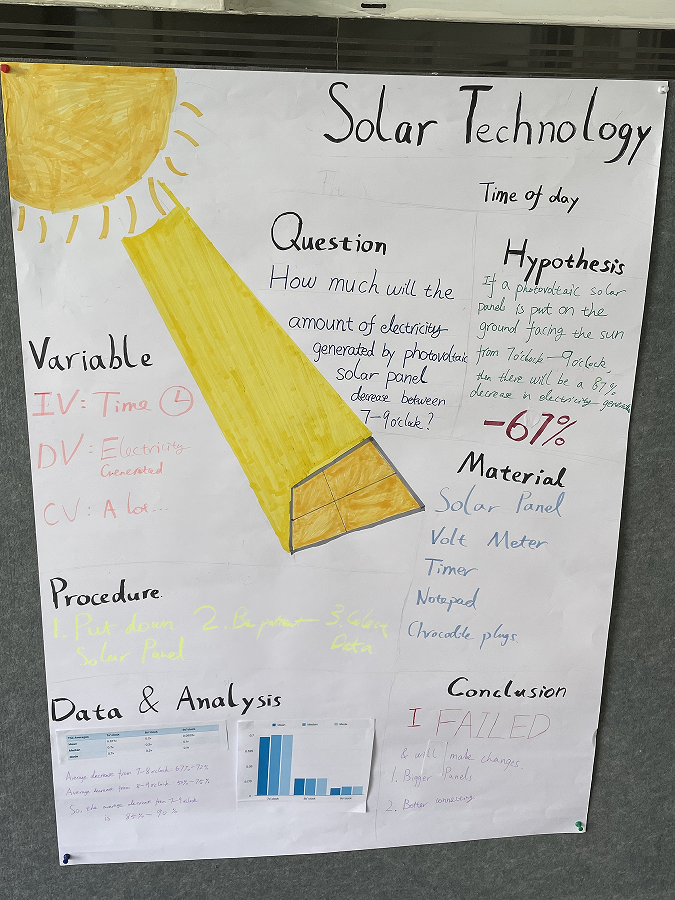 Solar Technology
Time of day
Question
How much will the
amount of electricity
generated by photovoltaic
solar panel
decrease between
7-9 o'clock?
Hypothesis
If a photovoltaic solar
panel is put on the
ground facing the sun
from 7 o'clock - 9 o'clock,
then there will be a 87%
decrease in electricity
-67%
Variable
IV: Time
DV: Electricity
Generated
CV: A lot...
Material
Solar Panel
Volt Meter
Timer
Notepad
Chrocodile plugs
Procedure.
1. Put down
Solar Panel
2. Be patient
3. 
Data
Data & Analysis
Mean
Median
Average decrease from 7-8 o'clock
Average decrease from 8-9 o'clock
average
is 85% - 90%
Conclusion
I FAILED
& will make changes
1. Bigger Panels
2. Better connecting